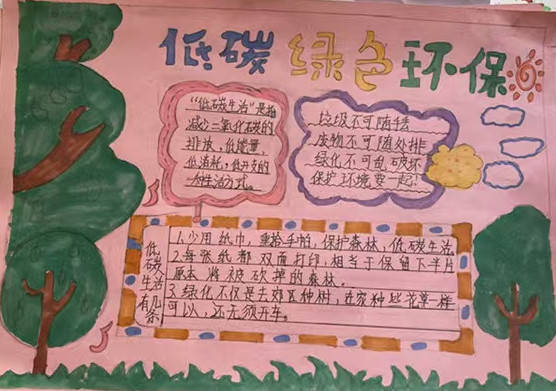 低碳 绿色 环保
"低碳生活"是指
减少二氧化碳的
排放，低能量
低消耗，低开支的
生活方式。
垃圾不可随手丢
废物不可随处排
绿化不可乱破坏
保护环境要一起
低碳生活有几条
1.少用纸巾，重拾手帕，保护森林，低碳生活
2.每张纸都双面打印，相当于保留下半片
原本将被砍掉的森林。
3.绿化不仅是去郊区种树，在家种些花草一样
可以，还无须开车。